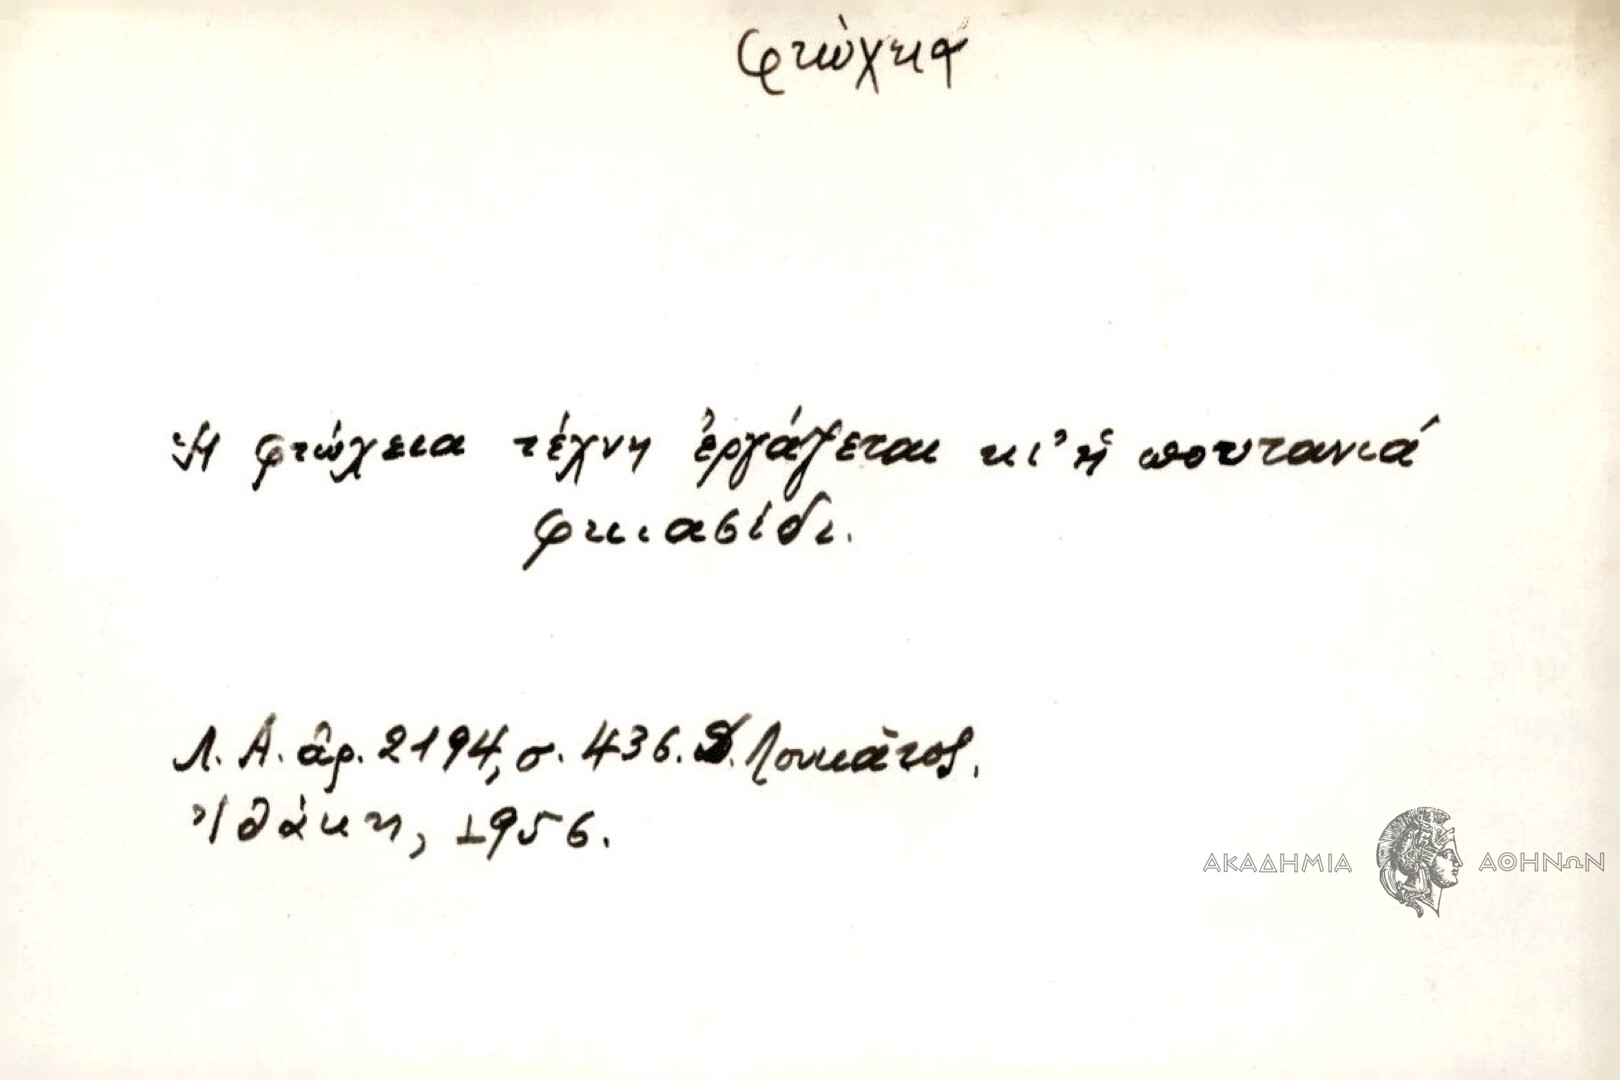 φτώχεια
Ἡ φτώχεια τέχνη ἐργάζεται κι' ἡ πουτανιά
φκιασίδι.
Λ. Α. ἀρ. 2194, σ. 436. Δ. Λουκᾶτος.
Ἰθάκη, 1956.
ΑΚΑΔΗΜΙΑ ΑΘΗΝΩΝ